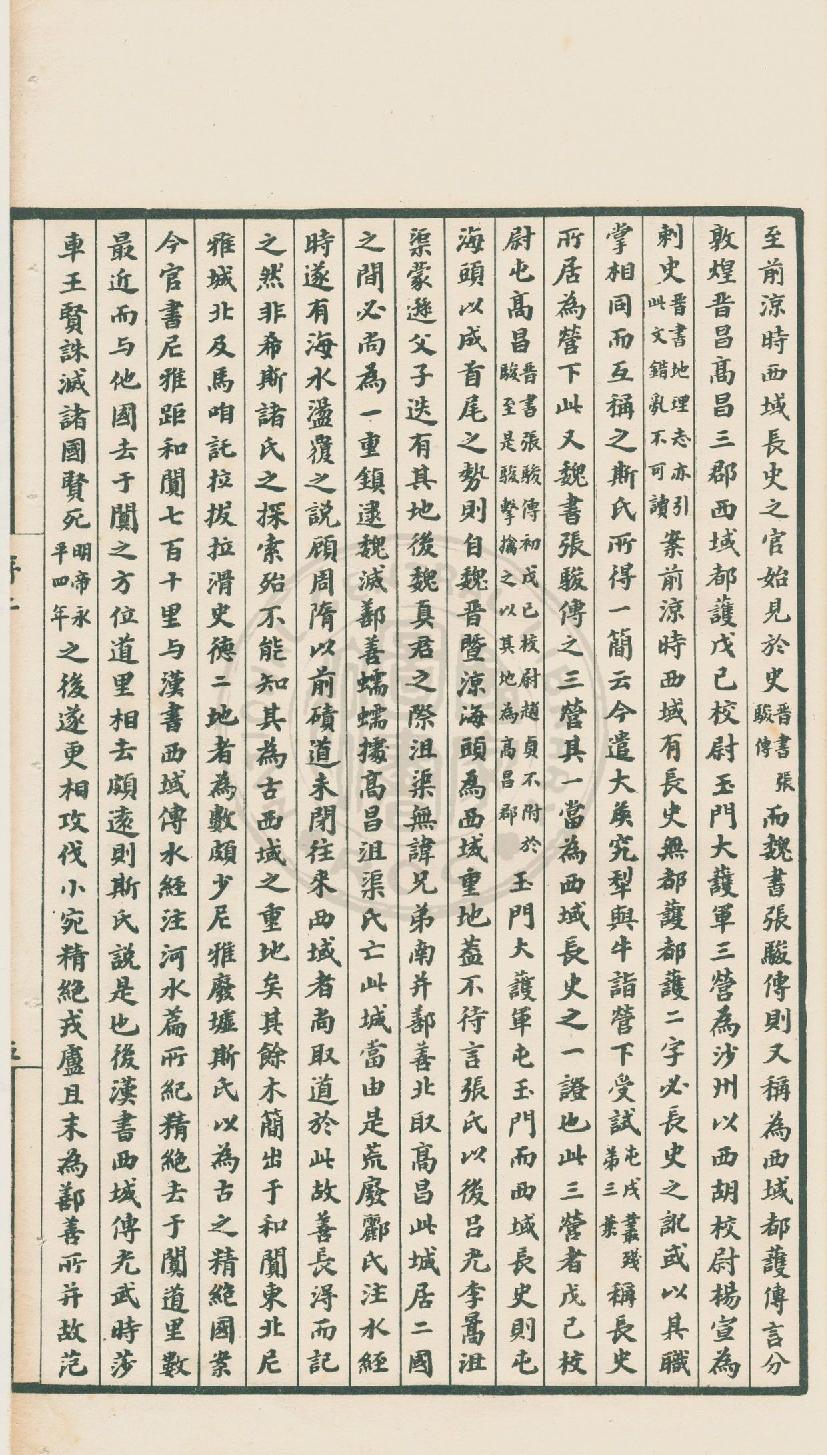 至前涼時西域長史之官始見於史晉書張駿傳而魏書張駿傳則又稱為西域都護傳言分
敦煌晉昌高昌三郡西域都護戊己校尉玉門大護軍三營為沙州以西胡校尉楊宣為
刺史晉書地理志亦引此文錯亂不可讀案前涼時西域有長史無都護都護二字必長史之訛或以其職
掌相同而互稱之斯氏所得一簡云今遣大侯究犁與牛詣營下受試屯戍叢殘第三葉稱長史
所居為營下此又魏書張駿傳之三營其一當為西域長史之一證也此三營者戊己校
尉屯高昌晉書張駿傳初戊己校尉趙貞不附於駿至是駿擊擒之以其地為高昌郡玉門大護軍屯玉門而西域長史則屯
海頭以成首尾之勢則自魏晉暨涼海頭為西域重地蓋不待言張氏以後呂光李暠沮
渠蒙遜父子迭有其地後魏真君之際沮渠無諱兄弟南并鄯善北取高昌此城居二國
之間必尚為一重鎮逮魏滅鄯善蠕蠕據高昌沮渠氏亡此城當由是荒廢酈氏注水經
時遂有海水盪覆之說顧周隋以前磧道未閉往來西域者尚取道於此故善長得而記
之然非希斯諸氏之探索殆不能知其為古西域之重地矣其餘木簡出于和闐東北尼
雅城北及馬咱託拉拔拉滑史德二地者為數頗少尼雅廢墟斯氏以為古之精絕國案
今官書尼雅距和闐七百十里与漢書西域傳水經注河水篇所紀精絕去于闐道里數
最近而与他國去于闐之方位道里相去頗遠則斯氏說是也後漢書西域傳光武時莎
車王賢誅滅諸國賢死明帝永平四年之後遂更相攻伐小宛精絕戎盧且末為鄯善所并故范